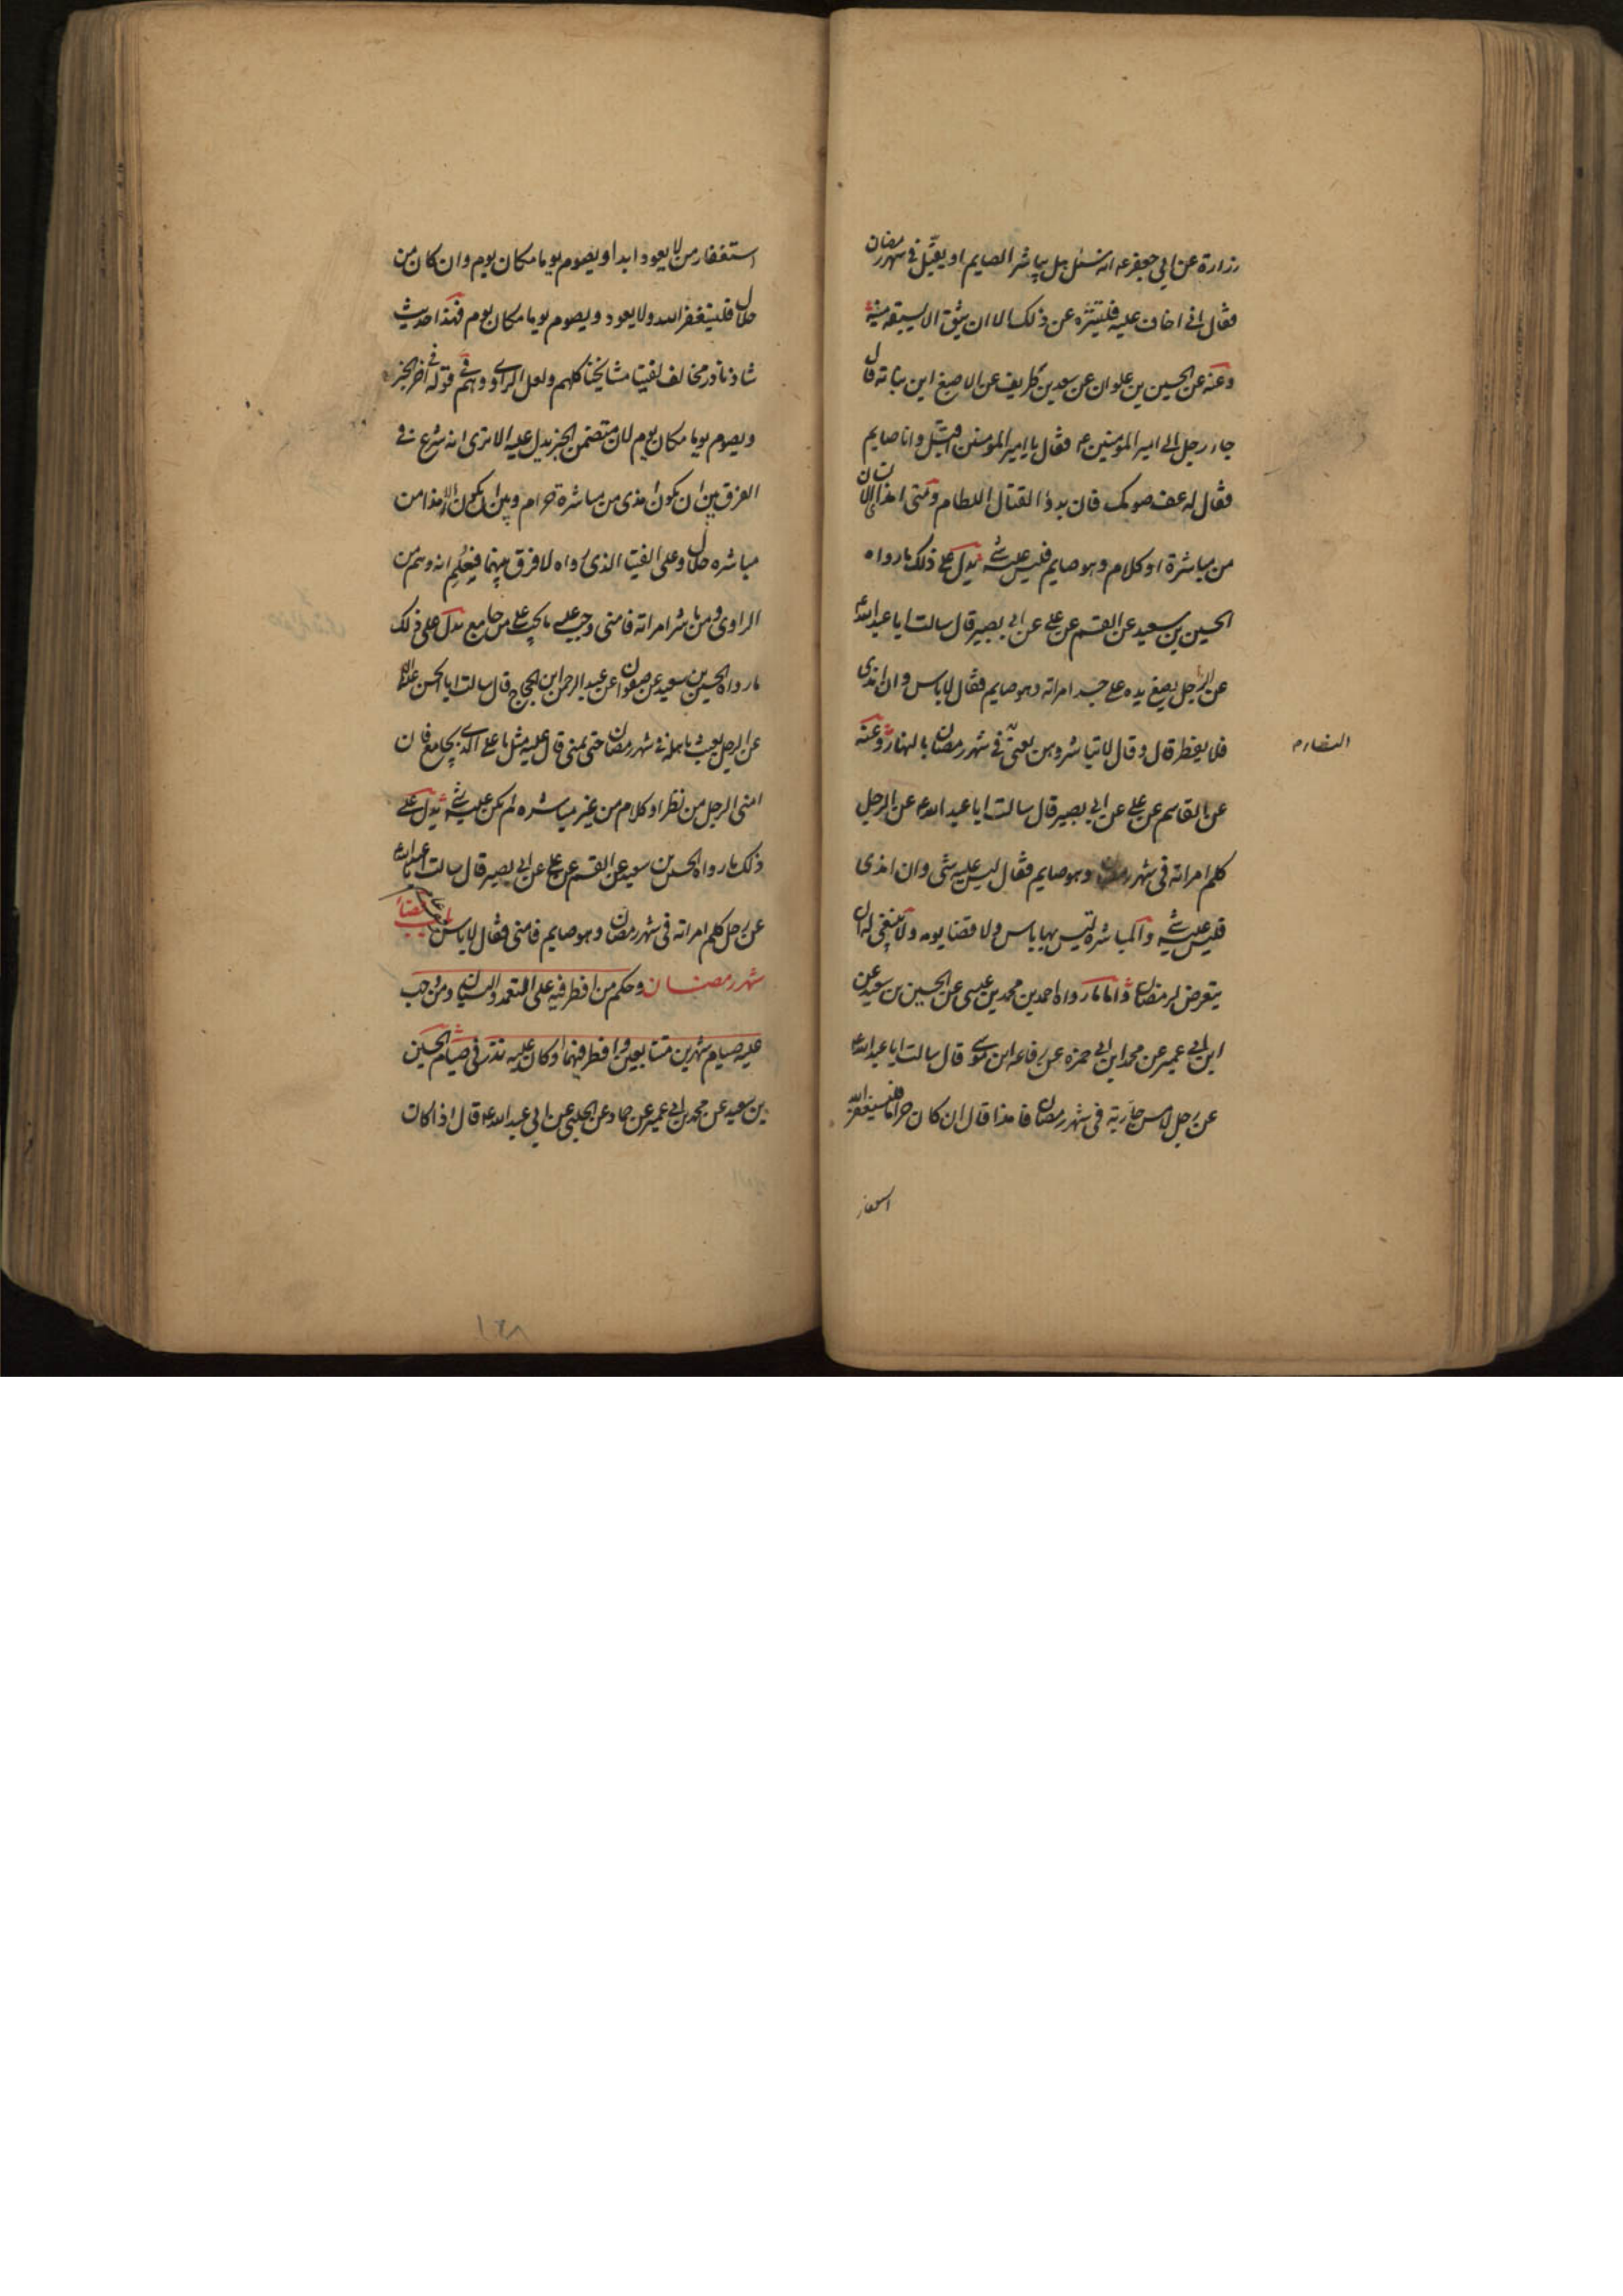 زرارة عن ابي جعفر عه انه سئل هل يباشر الصايم او يقبّل في شهر رمضان
فقال اني اخاف عليه فليتنزه عن ذلك الا ان يثق الا يسبقه منيه
وعنه عن الحسين بن علوان عن سعد بن طريف عن الاصبغ ابن نباته قال
جاء رجل الى امير المومنين ع فقال يا امير المومنين اقبّل وانا صايم
فقال له عف صومك فان بدؤ القتال اللطام ومتى امذى الانسان
من مباشرة او كلام وهو صايم فليس عليه شئ يدل على ذلك ما رواه
الحسين بن سعيد عن القسم عن على عن ابى بصير قال سالت ابا عبد الله ع
عن الرجل يضع يده على جسد امراته وهو صايم فقال لا باس وان امذى
فلا يفطر قال وقال لا تباشروهن يعنى في شهر رمضان بالنهار وعنه
عن القاسم عن على عن ابى بصير قال سالت ابا عبد الله ع عن الرجل
كلم امراته فى شهر رمضان وهو صايم فقال ليس عليه شى وان امذى
فليس عليه شئ والمباشرة ليس بها باس ولا قضا يومه ولا ينبغى له ان
يتعرض لرمضان واما ما رواه احمد بن محمد بن عيسى عن الحسين بن سعيد عن
ابن ابى عمير عن محمد ابن ابى حمزه عن رفاعه ابن موسى قال سالت ابا عبد الله ع
عن رجل لامس جارية فى شهر رمضان فامذا قال ان كان حراما فليستغفر الله
استغفار
استغفار من لا يعود ابدا ويصوم يوما مكان يوم وان كان من
حلال فليستغفر الله ولا يعود ويصوم يوما مكان يوم فهذا حديث
شاذ نادر مخالف لفتيا مشايخنا كلهم ولعل الراوى وهم في قوله في اخر الخبر
ويصوم يوما مكان يوم لان متضمن الخبر يدل عليه الا ترى انه شرع في
الفرق بين ان يكون امذى من مباشرة حرام وبين ان يكون الامذا من
مباشره حلال وعلى الفتيا الذى رواه لا فرق بينهما فيعلم انه وهم من
الراوى ومن باشر امراته فامنى وجب عليه ما يجب على من جامع يدل على ذلك
ما رواه الحسين بن سعيد عن صفوان عن عبد الرحمن ابن الحجاج قال سالت ابا الحسن
عن الرجل يعبث باهله في شهر رمضان حتى يمنى قال عليه مثل ما على الذى يجامع فان
امنى الرجل من نظر او كلام من غير مباشره لم يكن عليه شئ يدل على
ذلك ما رواه الحسين بن سعيد عن القسم عن على عن ابى بصير قال سالت ابا عبد الله ع
عن رجل كلم امراته فى شهر رمضان وهو صايم فامنى فقال لا باس باب قضاء
شهر رمضان وحكم من افطر فيه على التعمد والنسيان ومن وجب
عليه صيام شهرين متتابعين وافطر فيهما او كان عليه نذر فى صيام الحسين
بن سعيد عن محمد بن ابى عمير عن حماد عن الحلبى عن ابي عبد الله ع قال اذا كان